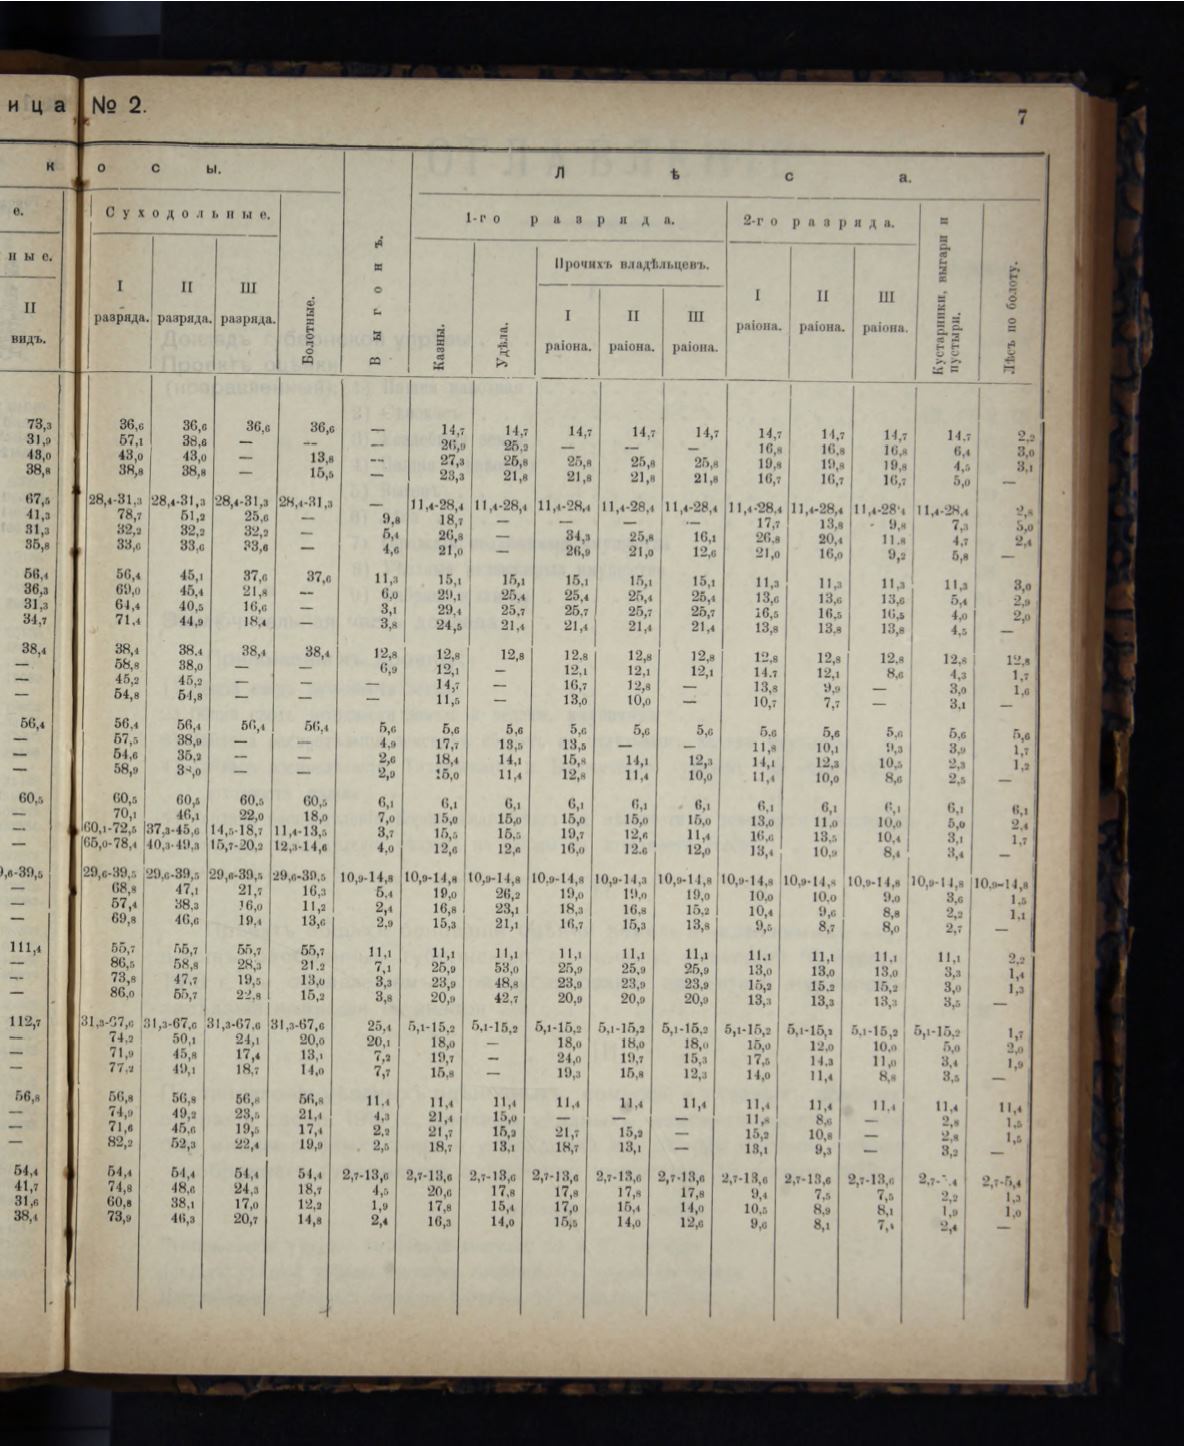 ица № 2.
7
к о с ы.
Л ѣ с а.
е.
Суходольные.
1-го разряда.
2-го разряда.
ные.
Прочихъ владѣльцевъ.
II видъ.
I разряда. II разряда. III разряда.
Болотные.
Выгонъ.
Казны.
Удѣла.
I раіона. II раіона. III раіона.
I раіона. II раіона. III раіона.
Кустарники, выгари и пустыри.
Лѣсъ по болоту.
73,3 36,6 36,6 36,6 36,6 — 14,7 14,7 14,7 14,7 14,7 14,7 14,7 14,7 14,7 2,2
31,9 57,1 38,6 — — — 26,9 25,2 — — — 16,8 16,8 16,8 6,4 3,0
43,0 43,0 43,0 — 13,8 — 27,3 25,8 25,8 25,8 25,8 19,8 19,8 19,8 4,5 3,1
38,8 38,8 38,8 — 15,5 — 23,3 21,8 21,8 21,8 21,8 16,7 16,7 16,7 5,0 —
67,5 28,4-31,3 28,4-31,3 28,4-31,3 28,4-31,3 — 11,4-28,4 11,4-28,4 11,4-28,4 11,4-28,4 11,4-28,4 11,4-28,4 11,4-28,4 11,4-28,4 11,4-28,4 2,8
41,3 78,7 51,2 25,6 — 9,8 18,7 — — — — 17,7 13,8 9,8 7,3 5,0
31,3 32,2 32,2 32,2 — 5,4 26,8 — 34,3 25,8 16,1 26,8 20,4 11,8 4,7 2,4
35,8 33,6 33,6 33,6 — 4,6 21,0 — 26,9 21,0 12,6 21,0 16,0 9,2 5,8 —
56,4 56,4 45,1 37,6 37,6 11,3 15,1 15,1 15,1 15,1 15,1 11,3 11,3 11,3 11,3 3,0
36,3 69,0 45,4 21,8 — 6,0 29,1 25,4 25,4 25,4 25,4 13,6 13,6 13,6 5,4 2,9
31,3 64,4 40,5 16,6 — 3,1 29,4 25,7 25,7 25,7 25,7 16,5 16,5 16,5 4,0 2,0
34,7 71,4 44,9 18,4 — 3,8 24,5 21,4 21,4 21,4 21,4 13,8 13,8 13,8 4,5 —
38,4 38,4 38,4 38,4 38,4 12,8 12,8 12,8 12,8 12,8 12,8 12,8 12,8 12,8 12,8 12,8
— 58,8 38,0 — — 6,9 12,1 — 12,1 12,1 12,1 14,7 12,1 8,6 4,3 1,7
— 45,2 45,2 — — — 14,7 — 16,7 12,8 — 13,8 9,9 — 3,0 1,6
— 54,8 54,8 — — — 11,5 — 13,0 10,0 — 10,7 7,7 — 3,1 —
56,4 56,4 56,4 56,4 56,4 5,6 5,6 5,6 5,6 5,6 5,6 5,6 5,6 5,6 5,6 5,6
— 57,5 38,9 — — 4,9 17,7 13,5 13,5 — — 11,8 10,1 9,3 3,9 1,7
— 54,6 35,2 — — 2,6 18,4 14,1 15,8 14,1 12,3 14,1 12,3 10,5 2,3 1,2
— 58,9 — — 2,9 15,0 11,4 12,8 11,4 10,0 11,4 10,0 8,6 2,5 —
60,5 60,5 60,5 60,5 60,5 6,1 6,1 6,1 6,1 6,1 6,1 6,1 6,1 6,1 6,1 6,1
— 70,1 46,1 22,0 18,0 7,0 15,0 15,0 15,0 15,0 15,0 13,0 11,0 10,0 5,0 2,4
— 60,1-72,5 37,3-45,6 14,5-18,7 11,4-13,5 3,7 15,5 15,5 19,7 12,6 11,4 16,6 13,5 10,4 3,1 1,7
— 65,0-78,4 40,3-49,3 15,7-20,2 12,3-14,6 4,0 12,6 12,6 16,0 12,6 12,0 13,4 10,9 8,4 3,4 —
9,6-39,5 29,6-39,5 29,6-39,5 29,6-39,5 29,6-39,5 10,9-14,8 10,9-14,8 10,9-14,8 10,9-14,8 10,9-14,3 10,9-14,8 10,9-14,8 10,9-14,8 10,9-14,8 10,9-14,8 10,9-14,8
— 68,8 47,1 21,7 16,3 5,4 19,0 26,2 19,0 19,0 19,0 10,0 10,0 9,0 3,6 1,5
— 57,4 38,3 16,0 11,2 2,4 16,8 23,1 18,3 16,8 15,2 10,4 9,6 8,8 2,2 1,1
— 69,8 46,6 19,4 13,6 2,9 15,3 21,1 16,7 15,3 13,8 9,5 8,7 8,0 2,7 —
111,4 55,7 55,7 55,7 55,7 11,1 11,1 11,1 11,1 11,1 11,1 11,1 11,1 11,1 11,1 2,2
— 86,5 58,8 28,3 21,2 7,1 25,9 53,0 25,9 25,9 25,9 13,0 13,0 13,0 3,3 1,4
— 73,8 47,7 19,5 13,0 3,3 23,9 48,8 23,9 23,9 23,9 15,2 15,2 15,2 3,0 1,3
— 86,0 55,7 22,8 15,2 3,8 20,9 42,7 20,9 20,9 20,9 13,3 13,3 13,3 3,5 —
112,7 31,3-67,6 31,3-67,6 31,3-67,6 31,3-67,6 25,4 5,1-15,2 5,1-15,2 5,1-15,2 5,1-15,2 5,1-15,2 5,1-15,2 5,1-15,2 5,1-15,2 5,1-15,2 1,7
— 74,2 50,1 24,1 20,0 20,1 18,0 — 18,0 18,0 18,0 15,0 12,0 10,0 5,0 2,0
— 71,9 45,8 17,4 13,1 7,2 19,7 — 24,0 19,7 15,3 17,5 14,3 11,0 3,4 1,9
— 77,2 49,1 18,7 14,0 7,7 15,8 — 19,3 15,8 12,3 14,0 11,4 8,8 3,5 —
56,8 56,8 56,8 56,8 56,8 11,4 11,4 11,4 11,4 11,4 11,4 11,4 11,4 11,4 11,4 11,4
— 74,9 49,2 23,5 21,4 4,3 21,4 15,0 — — — 11,8 8,6 — 2,8 1,5
— 71,6 45,6 19,5 17,4 2,2 21,7 15,2 21,7 15,2 — 15,2 10,8 — 2,8 1,5
— 82,2 52,3 22,4 19,9 2,5 18,7 13,1 18,7 13,1 — 13,1 9,3 — 3,2 —
54,4 54,4 54,4 54,4 54,4 2,7-13,6 2,7-13,6 2,7-13,6 2,7-13,6 2,7-13,6 2,7-13,6 2,7-13,6 2,7-13,6 2,7-13,6 2,7-5,4
41,7 74,8 48,6 24,3 18,7 4,5 20,6 17,8 17,8 17,8 17,8 9,4 7,5 7,5 2,2 1,3
31,6 60,8 38,1 17,0 12,2 1,9 17,8 15,4 17,0 15,4 14,0 10,5 8,9 8,1 1,9 1,0
38,4 73,9 46,3 20,7 14,8 2,4 16,3 14,0 15,5 14,0 12,6 9,6 8,1 7,4 2,4 —